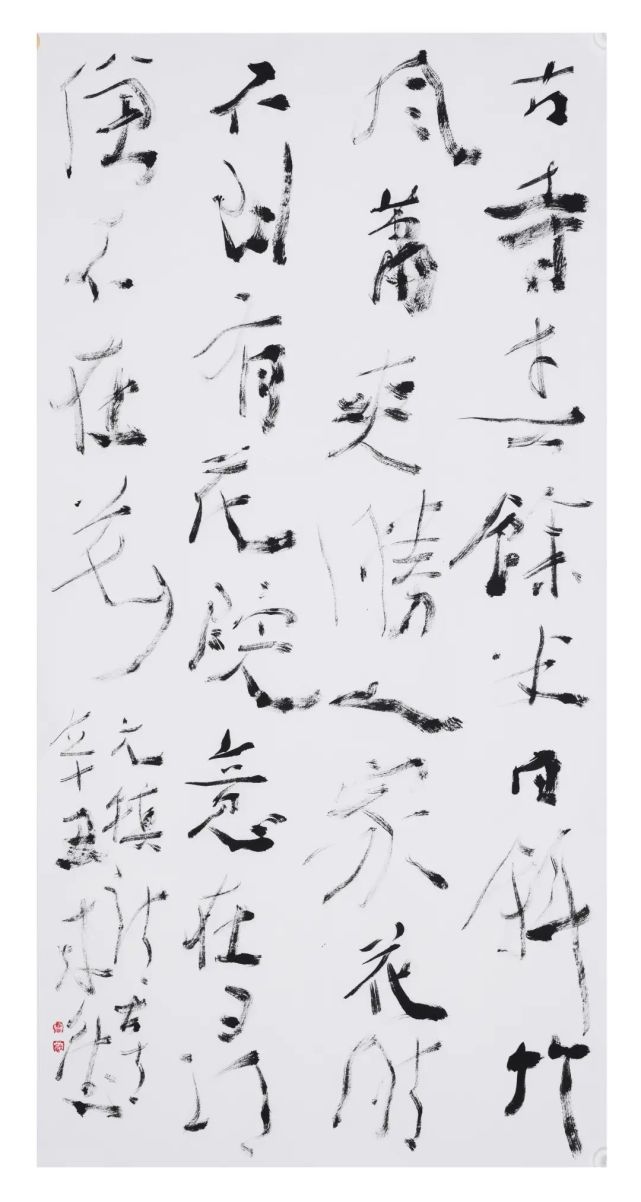 古寺春餘半日斜竹
風蕭爽勝人家花時
不到有花院意在尋
僧不在花
元稹詩古寺
辛丑